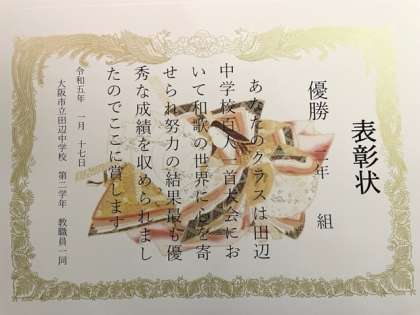 表彰状
優勝 二年 組
あなたのクラスは田辺
中学校百人一首大会にお
いて和歌の世界に心を寄
せられ努力の結果最も優
秀な成績を収められまし
たのでここに賞します
令和五年 一月 十七日
大阪市立田辺中学校 第二学年 教職員一同